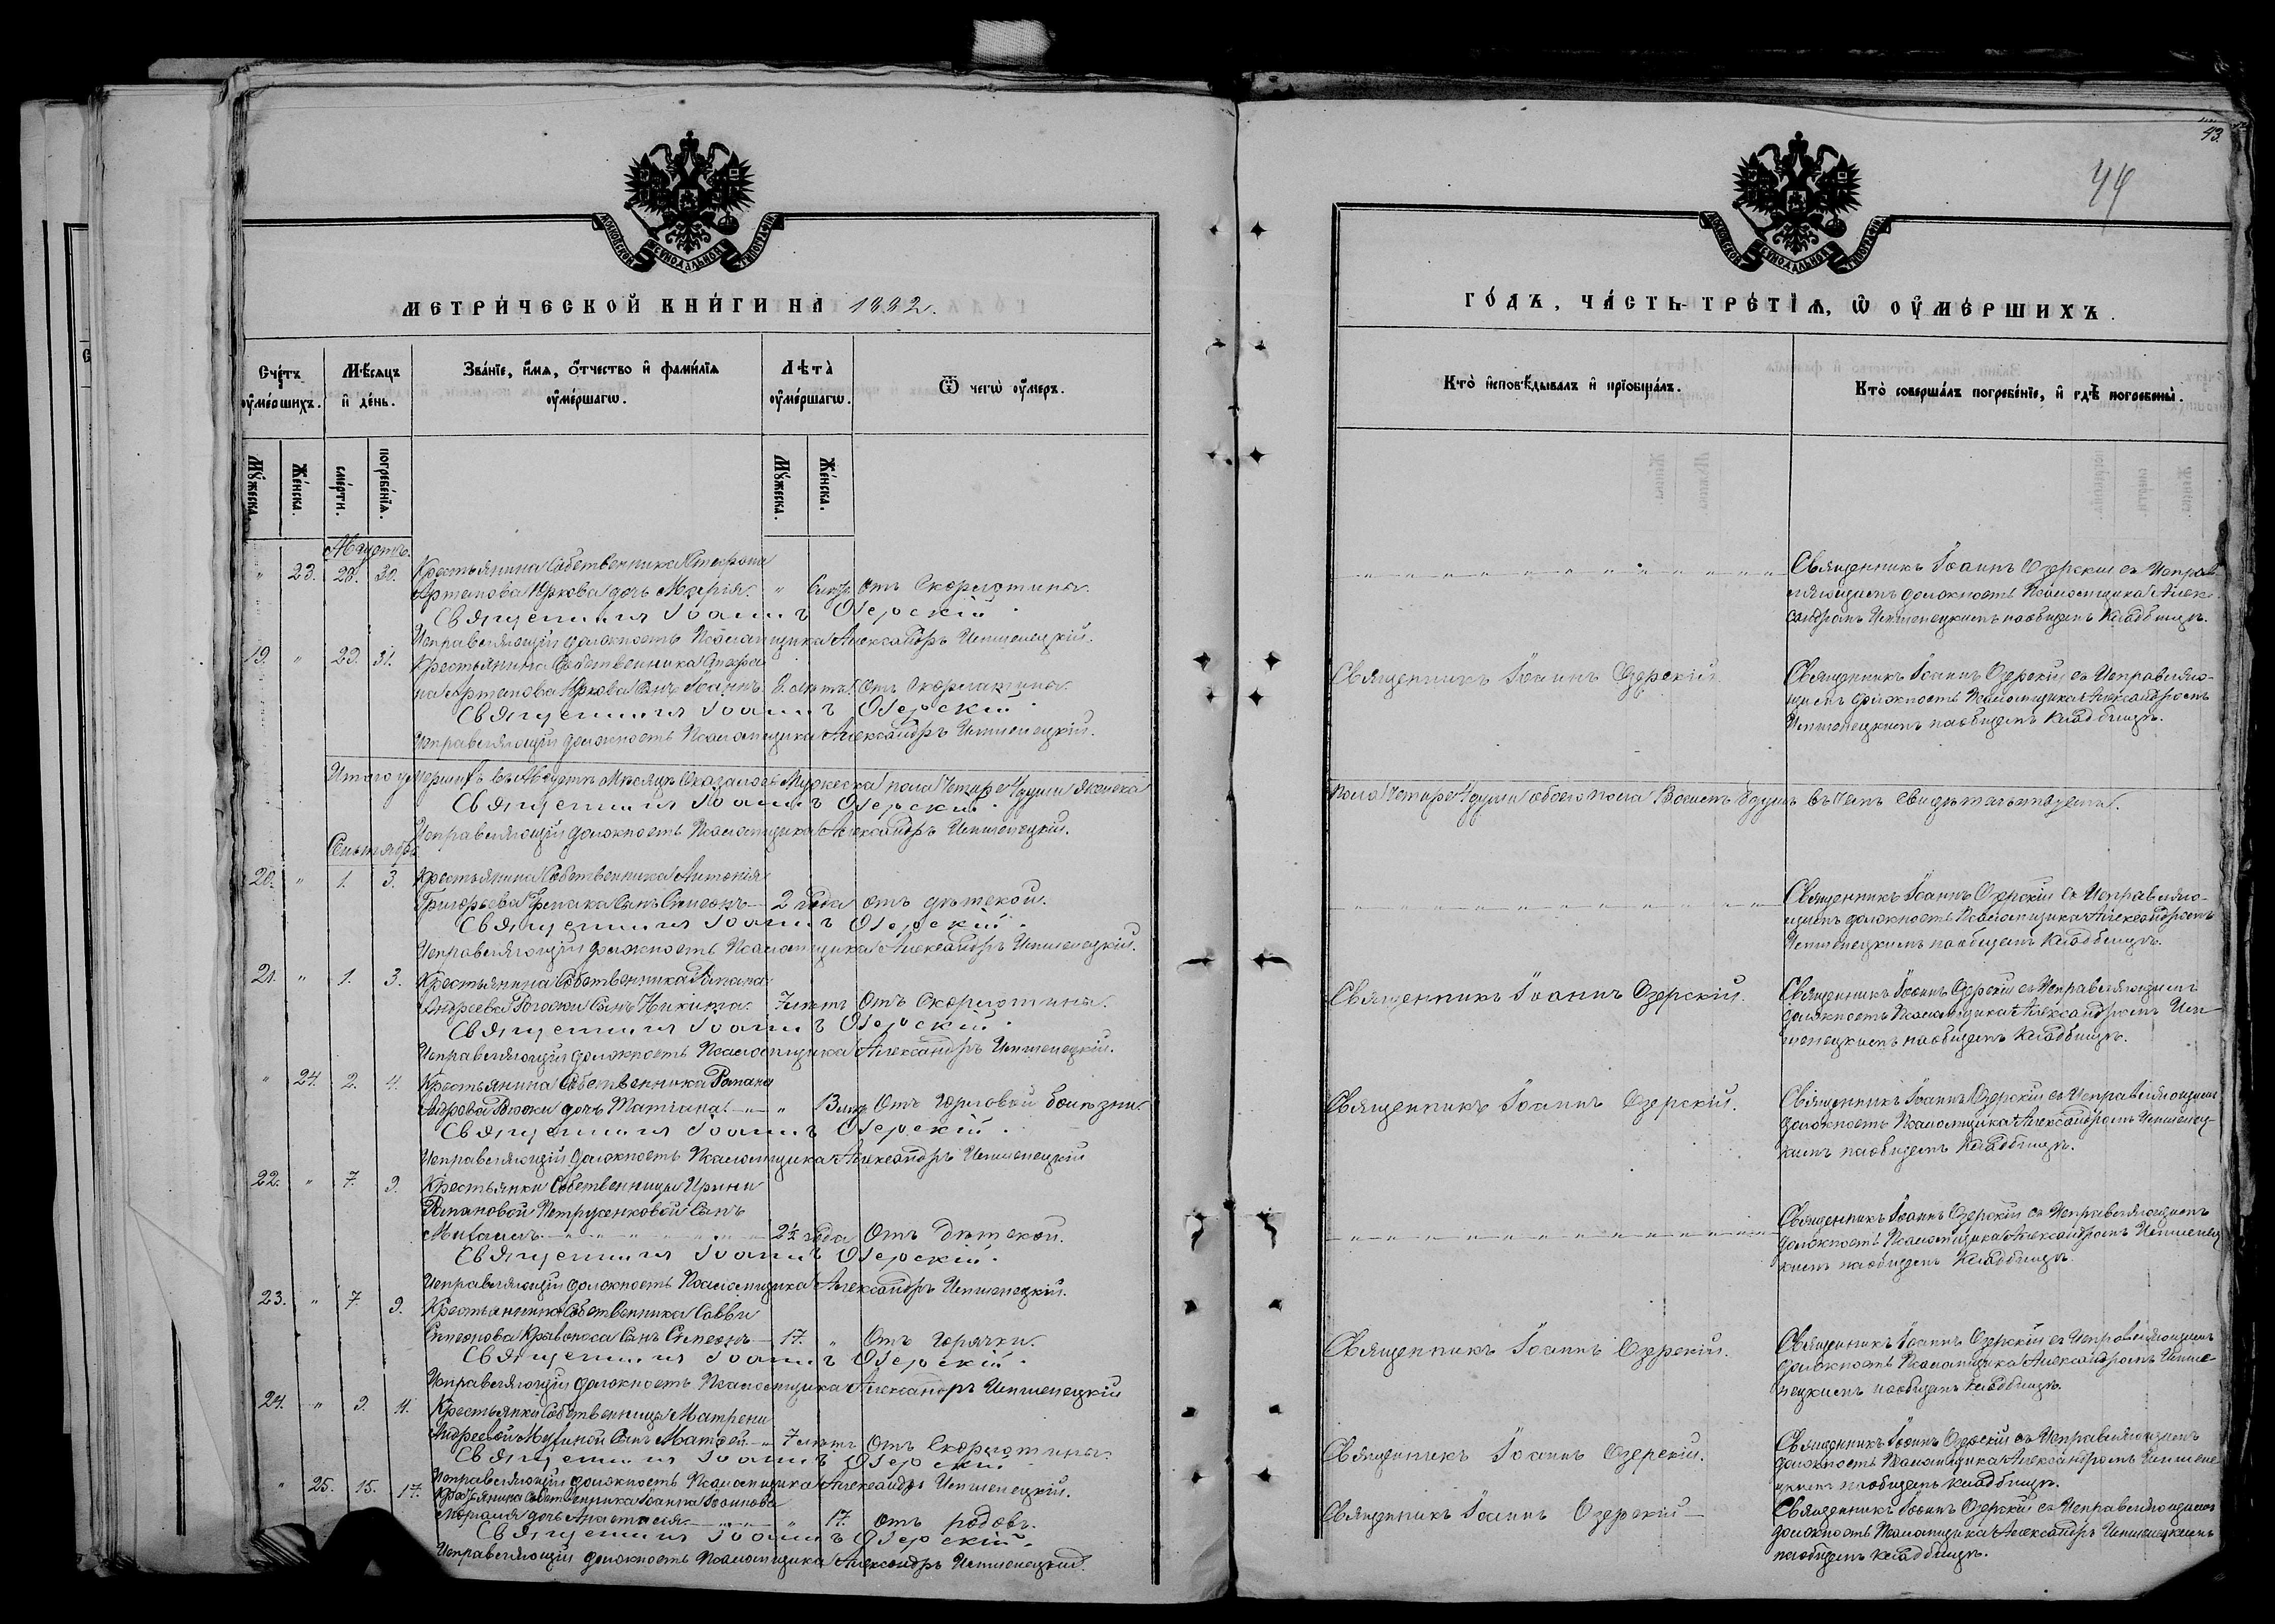 МЕТРИЧЕСКОЙ КНИГИ НА 1882 г.
Счетъ умершихъ.
Мѣсяцъ и день.
Званіе, имя, отчество и фамилія умершагω.
Лѣта умершагω.
Ѿ чегω умеръ.
Мужеска.
Женска.
смерти.
погребенія.
Мужеска.
Женска.
Августъ.
" 23. 28. 30. Крестьянина Собственника Стефана
Артемова Юркова дочь Марія. " 6 лѣтъ Отъ Скарлатины.
Священникъ Іоаннъ Озерскій.
Исправляющій должность Псаломщика Александръ
19. " 29. 31. Крестьянина Собственника Стефа
на Артемова Юркова сынъ Іоаннъ 8 лѣтъ Отъ Скарлатины.
Священникъ Іоаннъ Озерскій.
Исправляющій должность Псаломщика Александръ
Итого умершихъ въ Августѣ мѣсяцѣ оказалось Мужеска пола Четыре души женска
Священникъ Іоаннъ Озерскій.
Исправляющій должность Псаломщика Александръ
Сентябрь
20. " 1. 3. Крестьянина Собственника Антонія
Григорьева сынъ Симеонъ 2 года отъ дѣтской.
Священникъ Іоаннъ Озерскій.
Исправляющій должность Псаломщика Александръ
21. " 1. 3. Крестьянина Собственника Романа
Андреева сынъ Никита. 7 лѣтъ Отъ Скарлатины.
Священникъ Іоаннъ Озерскій.
Исправляющій должность Псаломщика Александръ
" 24. 2. 4. Крестьянина Собственника Романа
дочь Татіана " 13 лѣтъ Отъ Горловой болѣзни.
Священникъ Іоаннъ Озерскій.
Исправляющій должность Псаломщика Александръ
22. " 7. 9. Крестьянки Собственницы Ирины
Романовой Петрусенковой сынъ
Михаилъ 2½ года Отъ дѣтской.
Священникъ Іоаннъ Озерскій.
Исправляющій должность Псаломщика Александръ
23. " 7. 9. Крестьянина Собственника Саввы
Симеонова Кривоноса сынъ Симеонъ 17. " Отъ Горячки.
Священникъ Іоаннъ Озерскій.
Исправляющій должность Псаломщика Александръ
24. " 9. 11. Крестьянки Собственницы Матрены
Андреевой сынъ Матфей 7 лѣтъ Отъ Скарлатины.
Священникъ Іоаннъ Озерскій
Исправляющій должность Псаломщика Александръ
" 25. 15. 17. Крестьянина Собственника Іоанна Іоаннова
дочь Анастасія " 17. отъ родовъ.
Священникъ Іоаннъ Озерскій.
Исправляющій должность Псаломщика Александръ
43.
44
ГОДЪ, ЧАСТЬ ТРЕТІЯ, Ѡ УМЕРШИХЪ.
Кто исповѣдывалъ и пріобщалъ.
Кто совершалъ погребеніе, и гдѣ погребены.
Священникъ Іоаннъ Озерскій съ Исправ
ляющимъ должность Псаломщика Алек
сандромъ на общемъ кладбищѣ.
Священникъ Іоаннъ Озерскій.
Священникъ Іоаннъ Озерскій съ Исправляю-
щимъ должность Псаломщика Александромъ
на общемъ кладбищѣ.
пола Четыре души обоего пола Восемь душъ въ чемъ свидѣтельствуемъ.
Священникъ Іоаннъ Озерскій съ Исправляю-
щимъ должность Псаломщика Александромъ
на общемъ кладбищѣ.
Священникъ Іоаннъ Озерскій.
Священникъ Іоаннъ Озерскій съ Исправляющимъ
должность Псаломщика Александромъ
на общемъ кладбищѣ.
Священникъ Іоаннъ Озерскій.
Священникъ Іоаннъ Озерскій съ Исправляющимъ
должность Псаломщика Александромъ
на общемъ кладбищѣ.
Священникъ Іоаннъ Озерскій съ Исправляющимъ
должность Псаломщика Александромъ
на общемъ кладбищѣ.
Священникъ Іоаннъ Озерскій.
Священникъ Іоаннъ Озерскій съ Исправляющимъ
должность Псаломщика Александромъ
на общемъ кладбищѣ.
Священникъ Іоаннъ Озерскій.
Священникъ Іоаннъ Озерскій съ Исправляющимъ
должность Псаломщика Александромъ
на общемъ кладбищѣ.
Священникъ Іоаннъ Озерскій
Священникъ Іоаннъ Озерскій съ Исправляющимъ
должность Псаломщика Александръ
на общемъ кладбищѣ.